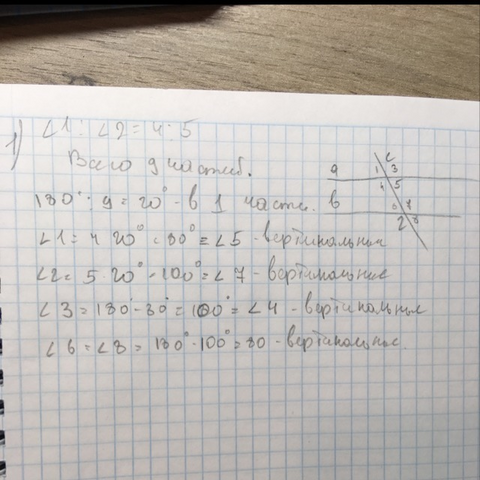 1) ∠1 : ∠2 = 4 : 5
Всего 9 частей.
180° : 9 = 20° - в 1 части.
∠1 = 4 · 20° = 80° = ∠5 - вертикальные
∠2 = 5 · 20° = 100° = ∠7 - вертикальные
∠3 = 180° - 80° = 100° = ∠4 - вертикальные
∠6 = ∠8 = 180° - 100° = 80 - вертикальные.
c
a 1 3
4 5
в 6 7
2 8